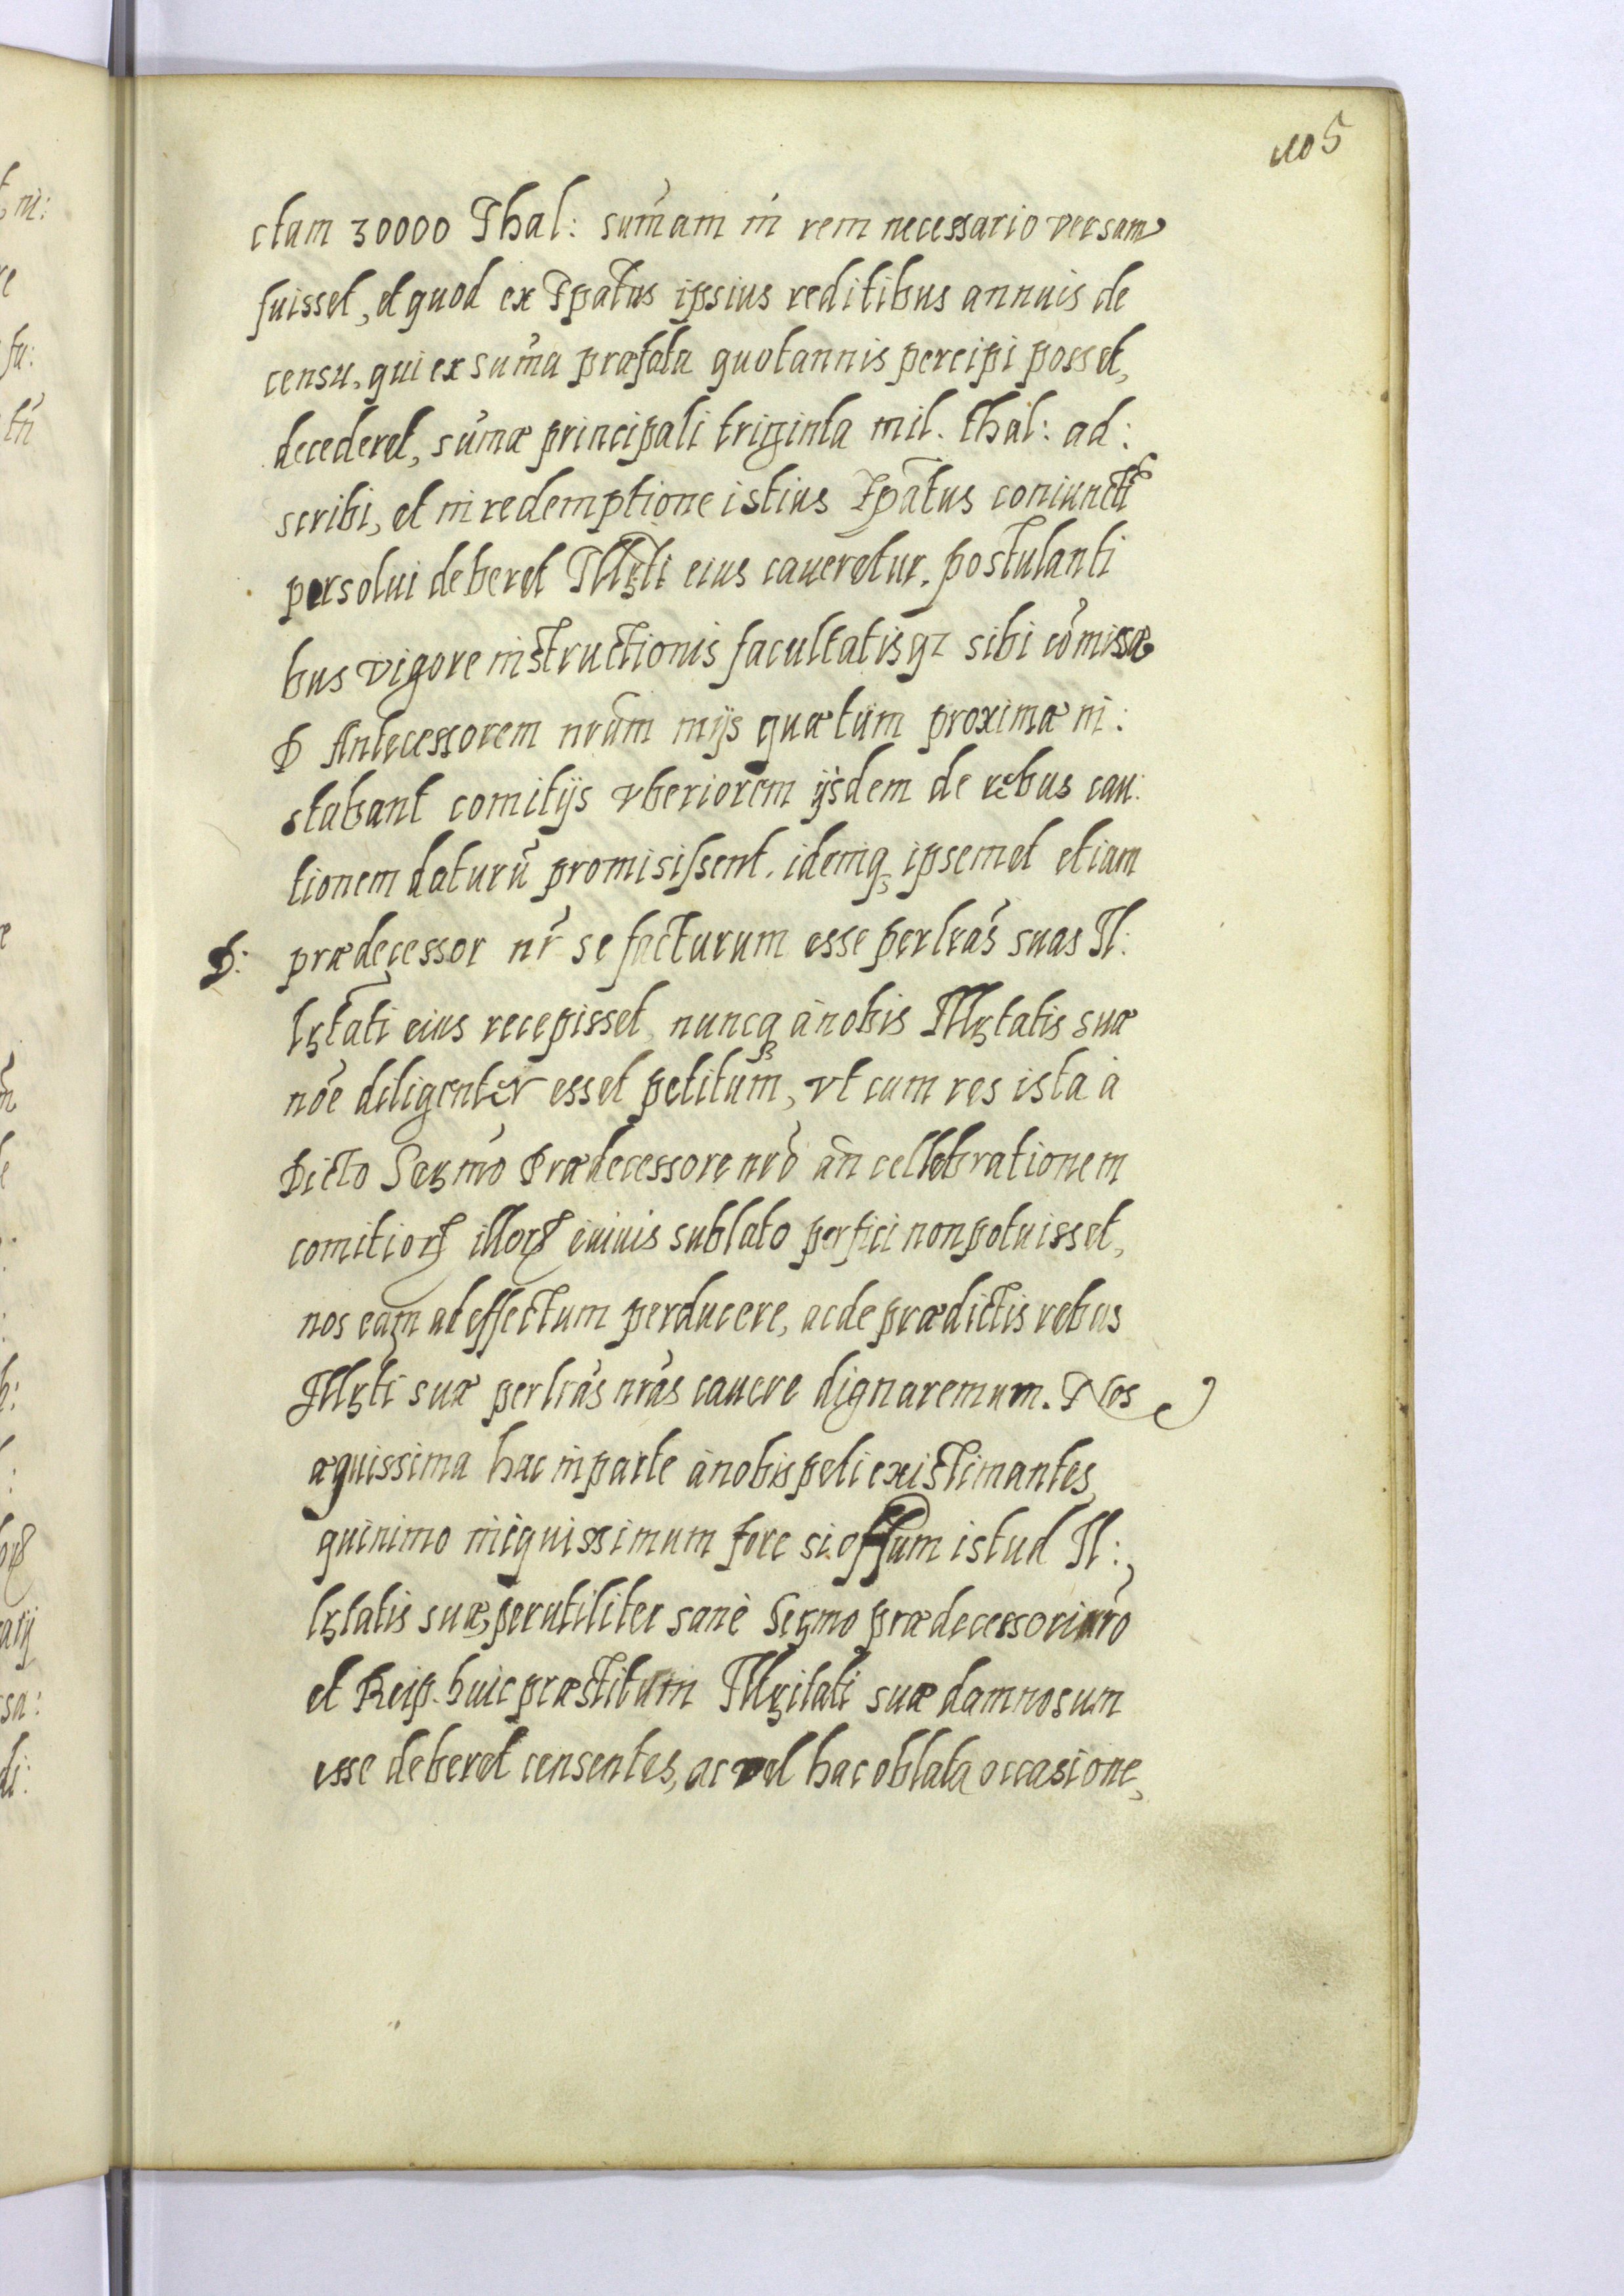 105
ctam 30000 Thal: sum̃am in rem necessario versam
fuisset, et quod ex Ipatus ipsius reditibus annuis de
censu, qui ex sum̃a præfata quotannis percipi posset,
decederet, sum̃æ principali triginta mil. thal: ad:
scribi, et in redemptione istius Ip̃atus coniunct
persolui deberet Illr̃ti eius caueretur. postulanti
bus vigore instructionis facultatisqz sibi com̃issæ
D Antecessorem nrũm inijs quætum proximæ in:
stabant comitijs vberiorem ijsdem de rebus cau:
tionem daturũ promisissent. idemq, ipsemet etiam
D: prædecessor nr̃ se facturum esse per lrãs suas Il:
lrtãti eius recepisset, nuncq à nobis Illrtatis suæ
nõe diligenter esset petitum, vt cum res ista à
Dicto Sermõ Prædecessore nrõ añ cellebrationem
comitiorũ illorũ è viuis sublato perfici non potuisset,
nos eam ad effectum perducere, ac de prædictis rebus
Illrti suæ per lrãs nrãs cauere dignaremur. Nos
æquissima hac in parte à nobis peti existimantes,
quinimo iniquissimum fore si offum istud Il:
lrtatis suæ, perutiliter sanè Sermo prædecessori nrõ
et Reip. huic præstitum Illritati suæ damnosum
esse deberet censentes, ac vel hac oblata occasione,